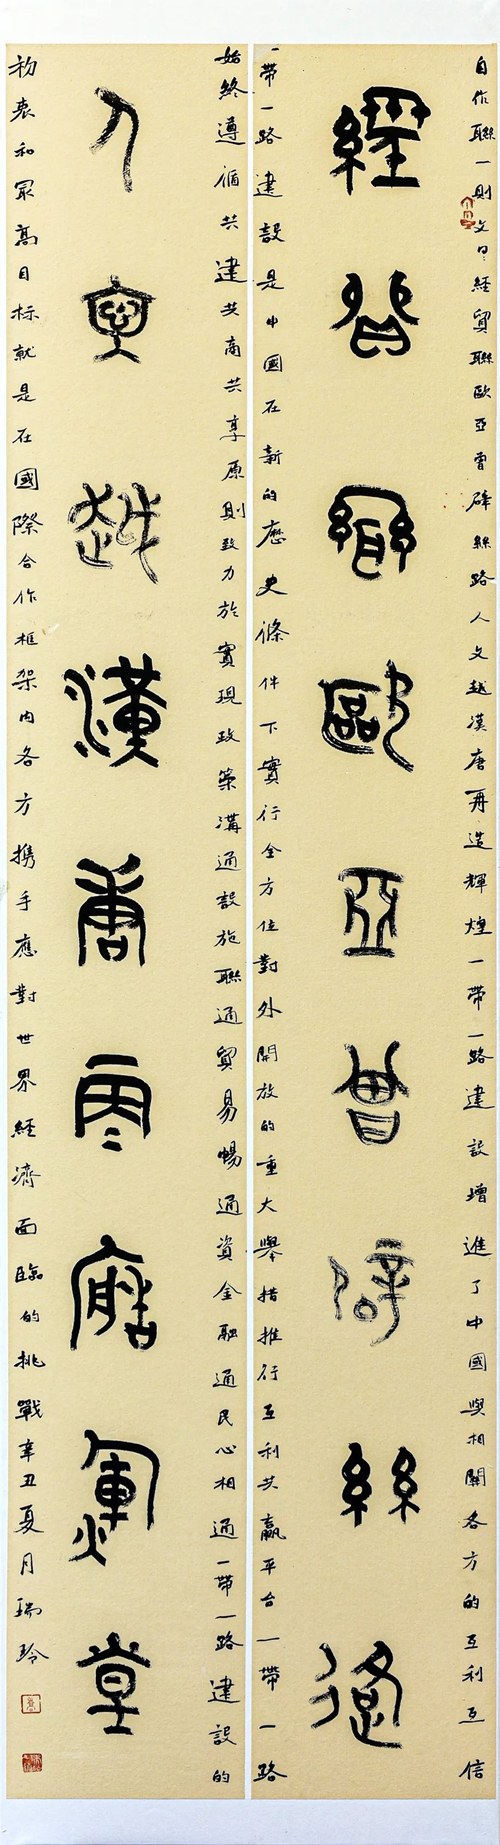 自作聯一則文曰經貿聯歐亞曾辟絲路人文越漢唐再造輝煌一帶一路建設增進了中國與相關各方的互利互信
經貿聯歐亞曾辟絲路
一帶一路建設是中國在新的歷史條件下實行全方位對外開放的重大舉措推行互利共贏平台一帶一路
始終遵循共建共商共享原則致力於實現政策溝通設施聯通貿易暢通資金融通民心相通一帶一路建設的
人文越漢唐再造輝煌
初衷和最高目标就是在國際合作框架內各方携手應對世界經濟面臨的挑戰辛丑夏月瑞玲